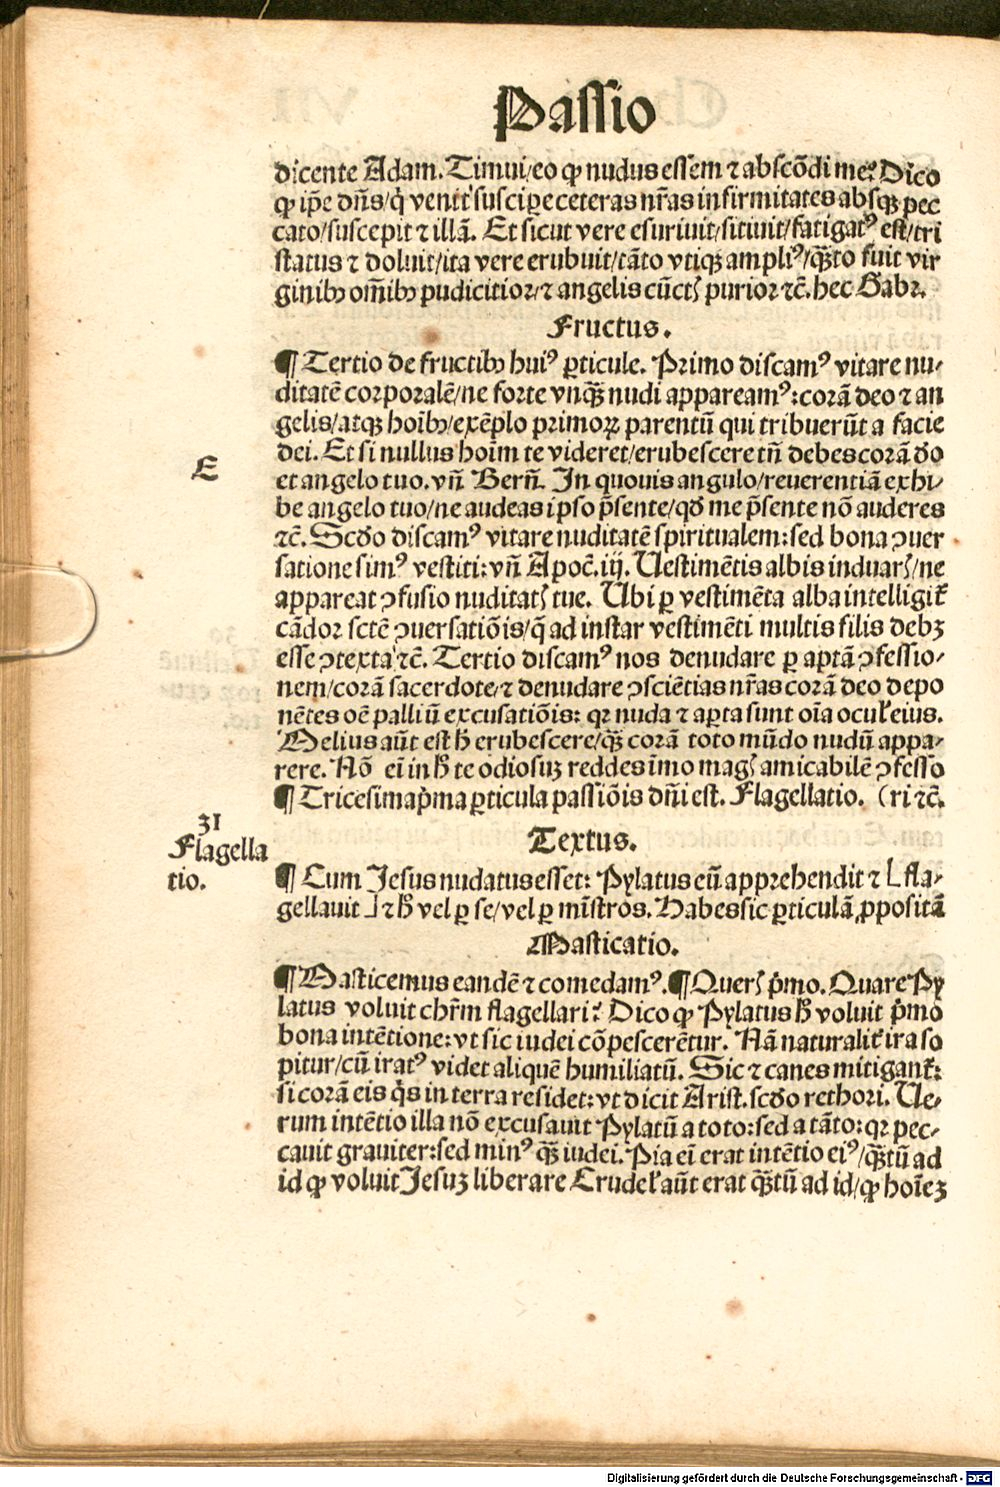 Passio
dicente Adam. Timui/eo ꝙ nudus essem ⁊ abscōdi me? Dico
ꝙ ip̄e dn̄s/q̇ venit suscipe ceteras nr̄as infirmitates absqꝫ pec
cato/suscepit ⁊ illā. Et sicut vere esuriuit/sitiuit/fatigatꝰ est/tri
status ⁊ doluit/ita vere erubuit/tāto vtiqꝫ ampliꝰ/q̄ꝫto fuit vir
ginibꝫ om̄ibꝫ pudicitior/⁊ angelis cūct͛ purior ⁊c̄. hec Gabr.
Fructus.
¶ Tertio de fructibꝫ huiꝰ ꝑticule. Primo discamꝰ vitare nu-
ditatē corporalē/ne forte vnq̄ꝫ nudi appareamꝰ: corā deo ⁊ an
gelis/atqꝫ hoībꝫ/exēplo primoꝝ parentū qui tribuerūt a facie
dei. Et si nullus hoīm te videret/erubescere tn̄ debes corā deo
E
et angelo tuo. vn̄ Bern̄. In quouis angulo/reuerentiā exhi-
be angelo tuo/ne audeas ipso p̄sente/qd̄ me p̄sente nō auderes
⁊c̄. Scd̄o discamꝰ vitare nuditatē spiritualem: sed bona ↄuer
satione simꝰ vestiti: vn̄ Apoc̄. iij. Uestimētis albis induar͛/ne
appareat ↄfusio nuditat͛ tue. Ubi ꝑ vestimēta alba intelligit͛
cādor sctē ↄuersatiōis/q̄ ad instar vestimēti multis filis debꝫ
esse ↄtexta ⁊c̄. Tertio discamꝰ nos denudare ꝑ aptā ↄfessio-
nem/corā sacerdote/⁊ denudare ↄsciētias nr̄as corā deo depo
nētes oē palliū excusatiōis: qꝛ nuda ⁊ apta sunt oīa ocul̕ eius.
Melius aūt est h̄ erubescere/q̄ꝫ corā toto mūdo nudū appa-
rere. Nō eī in h̄ te odiosuꝫ reddes īmo mag͛ amicabilē ↄfesso
¶ Tricesimap̄ma ꝑticula passiōis dn̄i est. Flagellatio. (ri ⁊c̄.
31
Flagella
tio.
Textus.
¶ Cum Jesus nudatus esset: Pylatus eū apprehendit ⁊ ⌊ fla-
gellauit ⌋ ⁊ h̄ vel ꝑ se/vel ꝑ mīstros. Habes sic ꝑticulā ꝓpositā
Masticatio.
¶ Masticemus eandē ⁊ comedamꝰ. ¶ Quer͛ p̄mo. Quare Py
latus voluit chr̄m flagellari? Dico ꝙ Pylatus h̄ voluit p̄mo
bona intētione: vt sic iudei cōpescerētur. Nā naturalit͛ ira so
pitur/cū iratꝰ videt aliquē humiliatū. Sic ⁊ canes mitigant͛:
si corā eis q̇s in terra residet: vt dicit Arist. scd̄o rethori. Ue-
rum intētio illa nō excusauit Pylatū a toto: sed a tāto: qꝛ pec-
cauit grauiter: sed minꝰ q̄ꝫ iudei. Pia eī erat intētio eiꝰ/q̄ꝫtū ad
id ꝙ voluit Jesuꝫ liberare Crudel̕ aūt erat q̄ꝫtū ad id/ꝙ hoīeꝫ
Digitalisierung gefördert durch die Deutsche Forschungsgemeinschaft - DFG